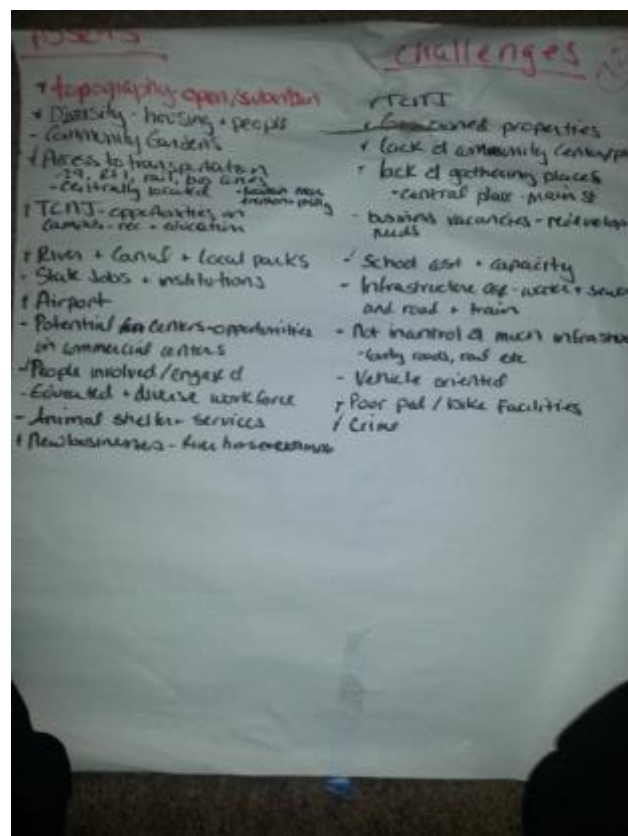 Assets
topography-open/suburban
Diversity - housing + people
- Community Gardens
Access to transportation
- 29, Rt 1, rail, bus lines
- centrally located
TCNJ - opportunities on
campus - rec + education
River + Canal + local parks
- State Jobs + institutions
Airport
- Potential centers - opportunities
in commercial centers
- People involved/engaged
- Educated + diverse workforce
- Animal shelter services
New businesses -
challenges
TCNJ
owned properties
lack of community center/
lack of gathering places
- central place - main st
- business vacancies - redevelop
needs
School cost + capacity
- Infrastructure age - water + sewer
and road + train
- Not in control of much infrastruc
- roads, rail etc
- Vehicle oriented
Poor ped / bike Facilities
Crime